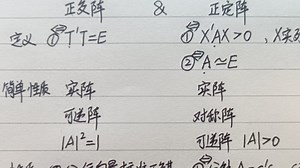 正交阵 & 正定阵
定义 ① T'T=E ① X'AX>0, X实
② A≃E
简单性质 实阵 实阵
可逆阵 对称阵
|A|²=1 可逆 |A|>0